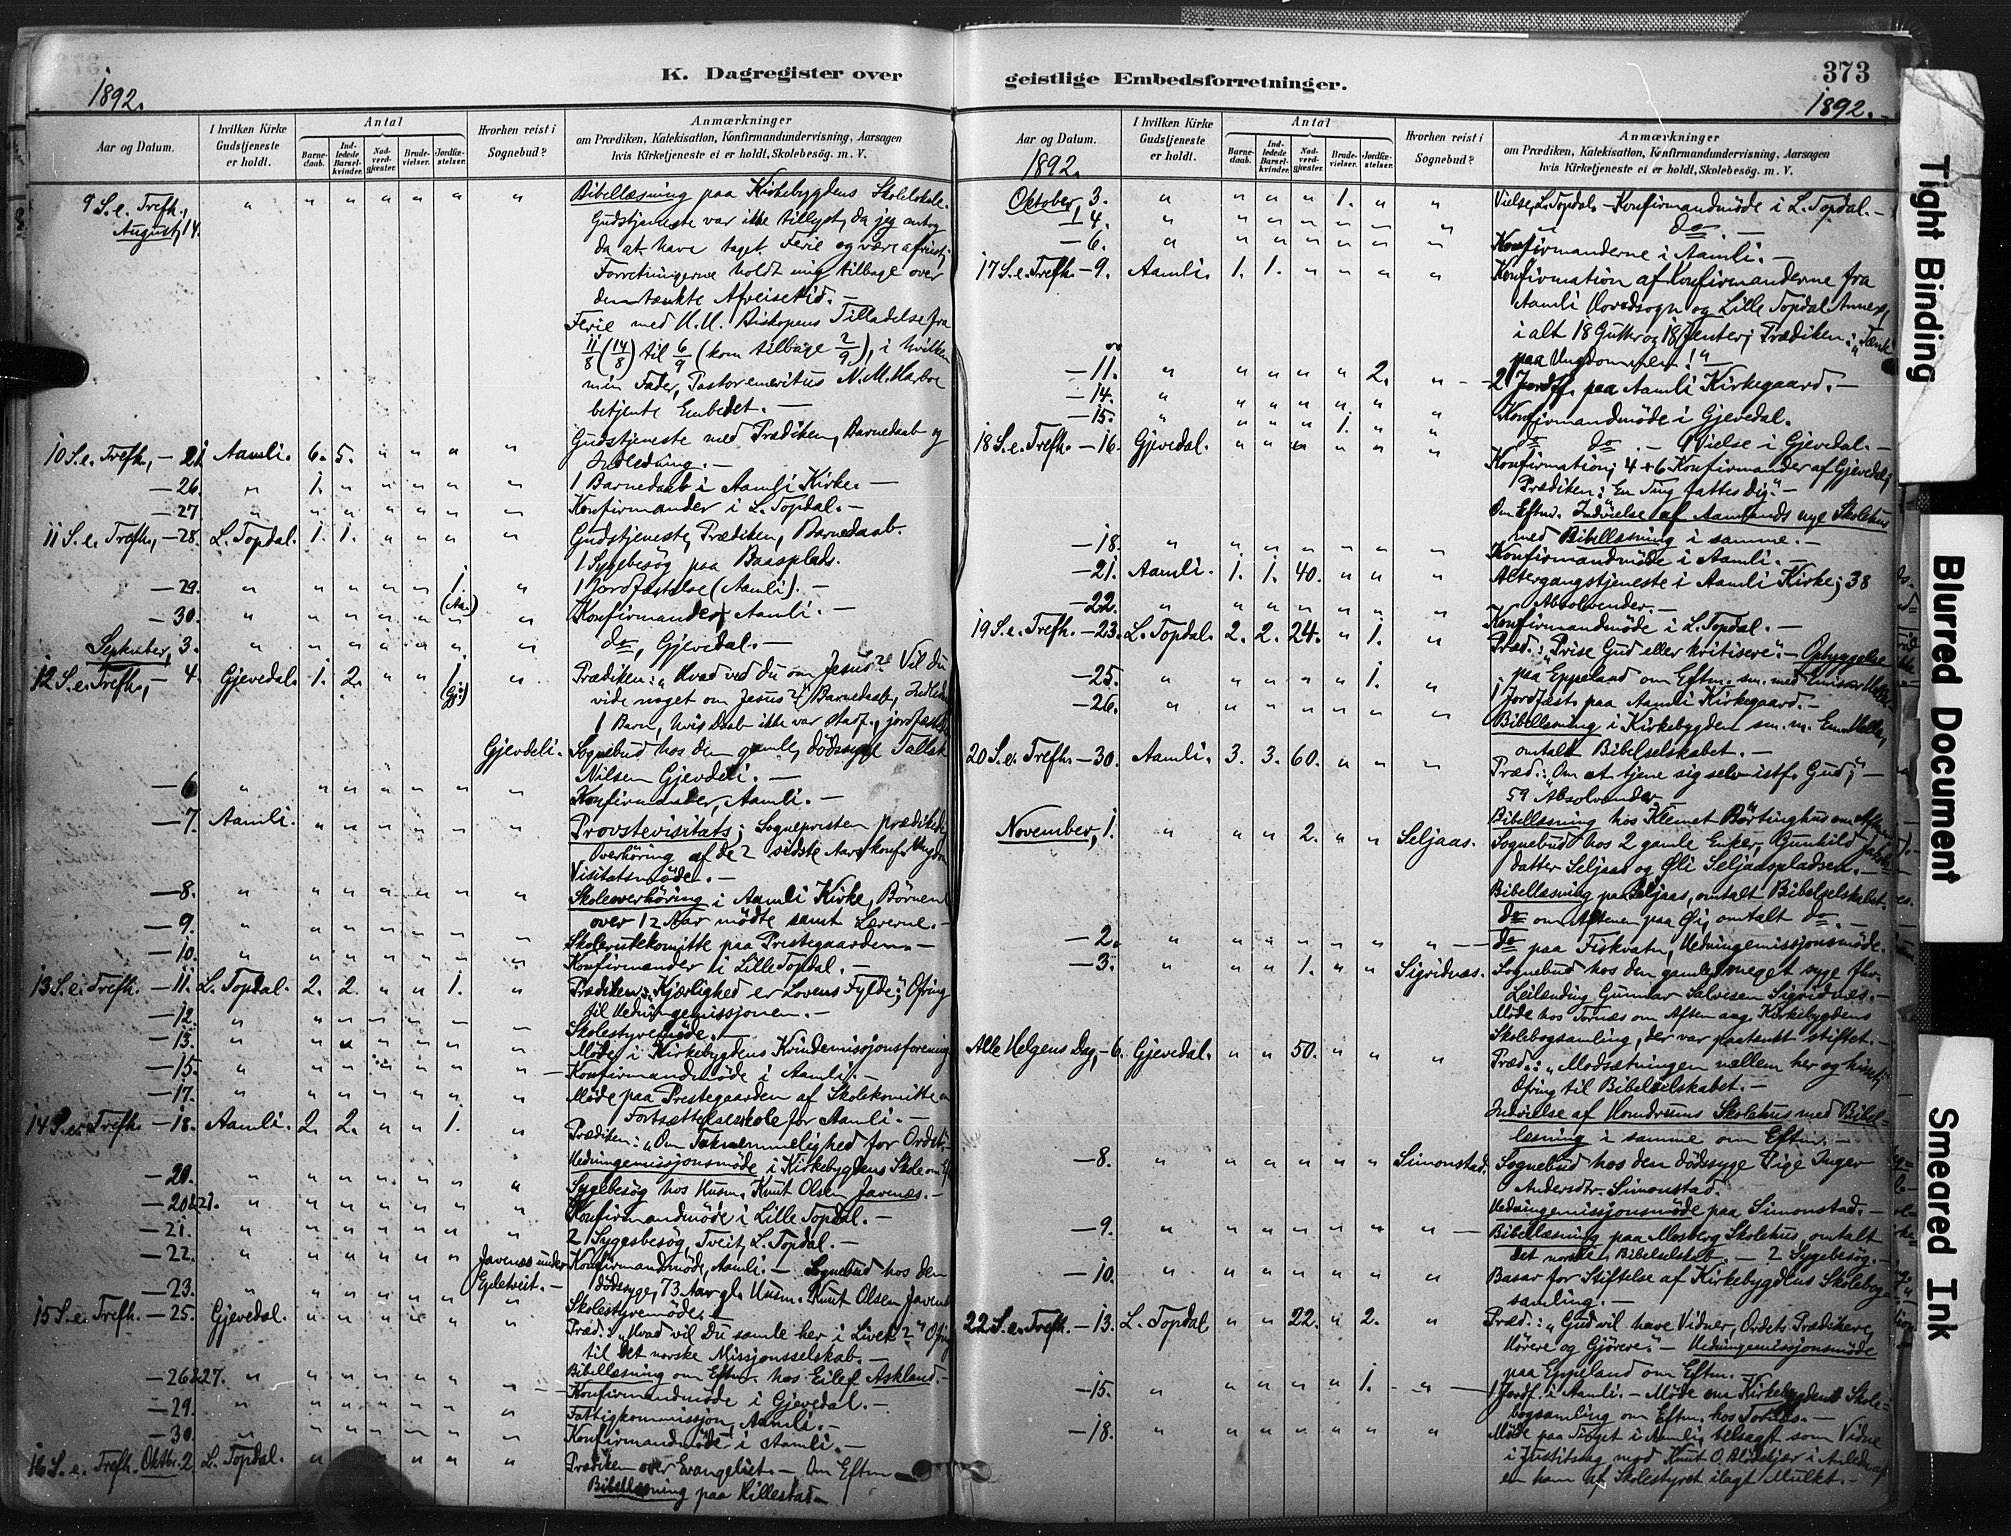 K. Dagregister over geistlige Embedsforretninger.
373
1892.
1892.
Aar og Datum.
I hvilken Kirke Gudstjeneste er holdt.
Antal
Barnedaab.
Indledede Barselkvinder.
Nadverdgjester.
Brudevielser.
Jordfæstelser.
Hvorhen reist i Sognebud?
Anmærkninger
om Prædiken, Katekisation, Konfirmandundervisning, Aarsagen
hvis Kirketjeneste ei er holdt, Skolebesøg. m. V.
9 S. e. Trefh., August, 14. " " " " " " " Bibellæsning paa Kirkebygdens Skolelokale.
Gudstjeneste var ikke tillyst, da jeg antog
da at have taget Ferie og være afreist;
Forretningerne holdt mig tilbage over
den tænkte Afreisetid. —
Ferie med H. H. Biskopens Tilladelse fra
11/8 (14/8) til 6/9 (kom tilbage 2/9), i hvilken
min Fader, Pastor emeritus N. M. Harboe
betjente Embedet. —
10 S. e. Trefh., — 21. Aamli. 6. 5. " " " " Gudstjeneste med Prædiken, Barnedaab og
Indledning. —
— 26. " 1. " " " " " 1 Barnedaab i Aamli Kirke. —
— 27 " " " " " " " Konfirmander i L. Topdal. —
11 S. e. Trefh., — 28. L. Topdal. 1. 1. " " " " Gudstjeneste, Prædiken, Barnedaab.
1 Sygebesøg paa Baasplads.
— 29. " " " " " 1. (Aa.) " 1 Jordfæstelse (Aamli). —
— 30. " " " " " " " Konfirmander, Aamli. —
September, 3. " " " " " " " do, Gjevedal. —
12 S. e. Trefh., — 4. Gjevedal. 1. 2. " " 1. (Gj.) " Prædiken: „Hvad ved du om Jesus? Vil du
vide noget om Jesus?" Barnedaab, Indledn.
1 Barn, hvis Daab ikke var stadf., jordfæstet
Gjevdeli. Sognebud hos den gamle, dødssyge Tallak
Nilsen Gjevdeli. —
— 6 " " " " " " " Konfirmander, Aamli. —
— 7. Aamli. " " " " " " Provstevisitats; Sognepresten prædikede
Overhøring af de 2 sidste Aars konf. Ungdom
Visitatsmøde. —
— 8. " " " " " " " Skoleoverhøring i Aamli Kirke, Børnene
over 12 Aar mødte samt Lærerne. —
— 9. " " " " " " " Skolerutekomitte paa Prestegaarden. —
— 10. " " " " " " " Konfirmander i Lille Topdal. —
13 S. e. Trefh. — 11. L. Topdal. 2. 2. " " 1. " Prædiken: „Kjærlighed er Lovens Fylde;" Ofring
til Hedningemissjonen. —
— 12. " " " " " " " Skolestyremøde. —
— 13. " " " " " " " Møde i Kirkebygdens Kvindemissjonsforening
— 15. " " " " " " " Konfirmandmøde i Aamli. —
— 17. " " " " " " " Møde paa Prestegaarden af Skolekomitte om
Fortsættelsesskole for Aamli. —
14 S. e. Trefh. — 18. Aamli. 2. 2. " " 1. " Prædiken: „Om Taknemmelighed for Ordet."
Hedningemissjonsmøde i Kirkebygdens Skole om Ef
— 20. " " " " " " " Sygebesøg hos Husm. Knut Olsen Javenæs. —
— 20 & 21. " " " " " " " Konfirmandmøde i Lille Topdal. —
— 21. " " " " " " " 2 Sygesbesøg, Tveit, L. Topdal. —
— 22. " " " " " " Javenæs under Epletveit. Konfirmandmøde, Aamli. — Sognebud hos den
dødssyge, 73 Aar gl. Husm. Knut Olsen Javenæs
— 23. " " " " " " " Skolestyremøde. —
15 S. e. Trefh. — 25. Gjevedal. " " " " " " Præd.: „Hvad vil Du samle her i Livet?" Ofring
til det norske Missjonsselskab. —
Bibellæsning om Eftm. hos Eilef Askland. —
— 26 & 27. " " " " " " " Konfirmandmøde i Gjevedal. —
— 29. " " " " " " " Fattigkommissjon, Aamli. —
— 30. " " " " " " " Konfirmandmøde i Aamli. —
16 S. e. Trefh. Oktbr. 2 L. Topdal. " " " " " " Prædiken over Evangeliet. — Om Eftm
Bibellæsning paa Hillestad —
Aar og Datum.
1892.
I hvilken Kirke Gudstjeneste er holdt.
Antal
Barnedaab.
Indledede Barselkvinder.
Nadverdgjester.
Brudevielser.
Jordfæstelser.
Hvorhen reist i Sognebud?
Anmærkninger
om Prædiken, Katekisation, Konfirmandundervisning, Aarsagen
hvis Kirketjeneste ei er holdt, Skolebesøg. m. V.
Oktober, 3. " " " " 1. " " Vielse, L. Topdal. — Konfirmandmøde i L. Topdal. —
— 4. " " " " " " " do —
— 6. " " " " " " " Konfirmanderne i Aamli. —
17 S. e. Trefh. — 9. Aamli. 1. 1. " " " " Konfirmation af Konfirmanderne fra
Aamli Hovedsogn og Lille Topdal Annex,
i alt 18 Gutter og 18 Jenter; Prædiken: „Tænk
paa Ungdommen!"
— 11. " " " " " 2. " — 2 Jordf. paa Aamli Kirkegaard. —
— 14. " " " " " " " Konfirmandmøde i Gjevedal.
— 15. " " " " 1. " " do do. — 1 Vielse i Gjevedal. —
18 S. e. Trefh. — 16. Gjevedal. " " " " " " Konfirmation; 4 + 6 Konfirmander af Gjevedal;
Prædiken: „En Ting fattes Dig." —
Om Eftm. Indvielse af Aamlands nye Skolehus
med Bibellæsning i samme. —
— 18. " " " " " " " Konfirmandmøde i Aamli. —
— 21. Aamli. 1. 1. 40. " " " Altergangstjeneste i Aamli Kirke; 38
Absolvender. —
— 22. " " " " " " " Konfirmandmøde i L. Topdal. —
19 S. e. Trefh. — 23. L. Topdal. 2. 2. 24. " 1. " Præd.: „Prise Gud eller kritisere". — Opbyggelse
paa Eppeland om Eftm. sm. med Emissær
— 25. " " " " " 1. " 1 Jordfæst. paa Aamli Kirkegaard. —
— 26. " " " " " " " Bibellæsning i Kirkebygden sm. m. Em.
omtalt Bibelselskabet. —
20 S. e. Trefh. — 30. Aamli. 3. 3. 60. " " " Præd.: „Om at tjene sig selv istf. Gud;" —
59 Absolvender.
Bibellæsning hos Klemet Børtinghus om Aftenen
November, 1. " " " 2. " " Seljaas. Sognebud hos 2 gamle Enker, Gunhild
datter Seljaas og Øli Seljaaspladsen. —
Bibellæsning paa Seljaas, omtalt Bibelselskabet.
do om Aftenen paa Øi, omtalt do. —
— 2. " " " " " " " — do paa Fiskvatn, Hedningemissjonsmøde. —
— 3. " " " 1. " " Sigridnæs. Sognebud hos den gamle, meget syge fhv.
Leilænding Gunnar Salvesen Sigridnæs. —
Møde hos Tornæs om Aften ang. Kirkebygdens
Skolebogsamling, der var paatænkt stiftet. —
Alle Helgens Dag, — 6. Gjevedal. " " 50. " " " Præd.: „Modsætningen mellem her og hisset;"
Ofring til Bibelselskabet. —
Indvielse af Hondrums Skolehus med Bibel-
læsning i samme om Eftm. —
— 8. " " " " " " Simonstad. Sognebud hos den dødssyge Pige Inger
Andersdtr. Simonstad.
Hedningemissjonsmøde paa Simonstad. —
— 9. " " " " " " " — Bibellæsning paa Mosberg Skolehus, omtalt
det norske Bibelselskab. — 2 Sygebesøg. —
— 10. " " " " " " " Basar for Stiftelse af Kirkebygdens Skolebog-
samling. —
22 S. e. Trefh. — 13. L. Topdal " " 22. " 2. " Præd.: „Gud vil have Vidner, Ordets Prædikere,
Hørere og Gjørere". — Hedningemissjonsmøde
paa Eppeland om Eftm. —
— 15. " " " " " 1. " — 1 Jordf. i Aamli. — Møde om Kirkebygdens Skole-
bogsamling om Eftm. hos Tornæs. —
— 18. " " " " " " " Møde paa Tinget i Aamli, tilsagt som Vidne
i Justitssag mod Knut O. Blødekjær i Anledn. af
en ham af Skolestyret ilagt Mulkt. —
Tight Binding
Blurred Document
Smeared Ink